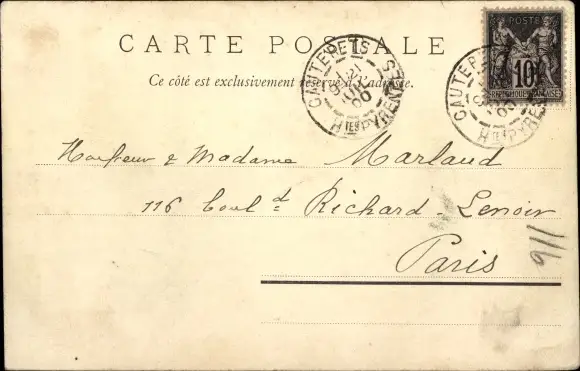 CARTE POSTALE
Ce côté est exclusivement réservé à l'adresse.
CAUTERETS
Htes PYRENEES
CAUTERETS
Hts PYRENEES
POSTES
10
REPUBLIQUE FRANÇAISE
Monsieur & Madame Marlaud
116 boul d Richard-Lenoir
Paris
116